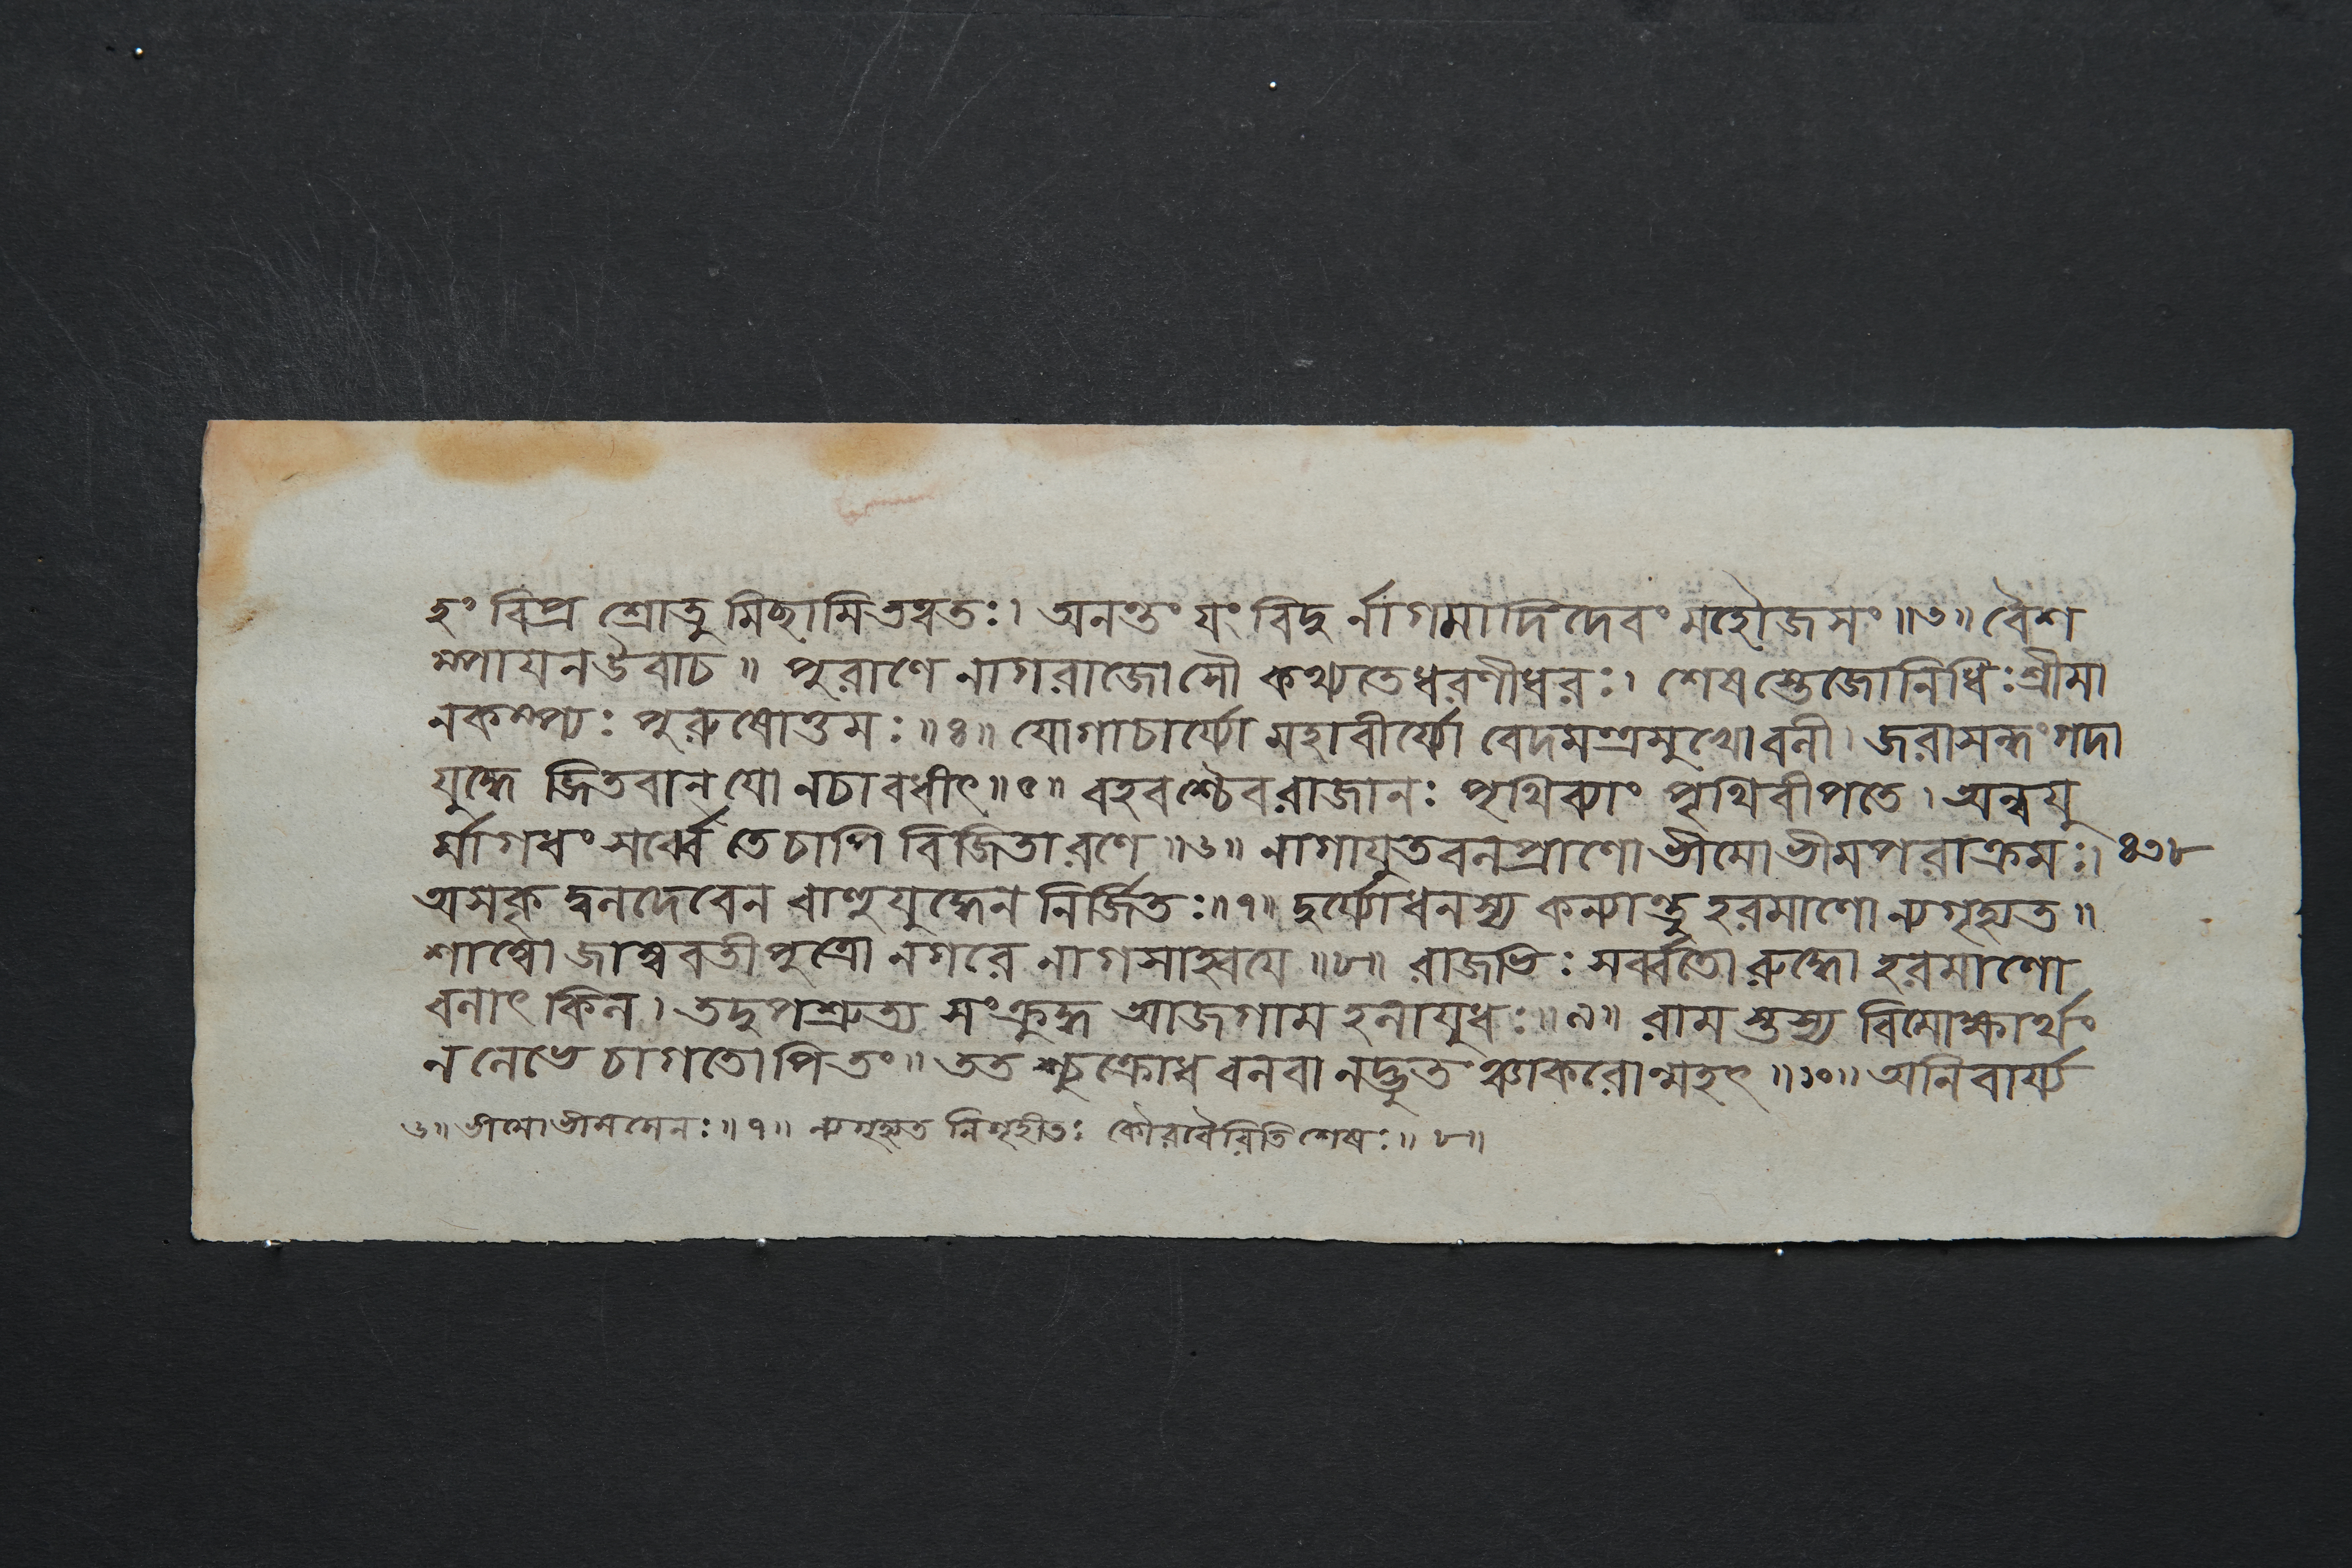 হং বিপ্র শ্রোতুমিচ্ছামিতত্ত্বতঃ। অনন্তং যং বিদুর্নাগমাদিদেবং মহৌজসং॥৩॥ বৈশ
ম্পায়নউবাচ॥ পুরাণে নাগরাজোসৌ কথ্যতেধরণীধরঃ। শেষস্তেজোনিধিঃশ্রীমা
নকম্প্যঃ পুরুষোত্তমঃ॥৪॥ যোগাচার্য্যো মহাবীর্য্যো বেদমন্ত্রমুখোবলী। জরাসন্ধংগদা
যুদ্ধে জিতবান্ যো নচাবধীৎ॥৫॥ বহবশ্চৈবরাজানঃ পৃথিব্যাং পৃথিবীপতে। অন্বযু
র্মাগধং সর্ব্বে তেচাপি বিজিতারণে॥৬॥ নাগাযুতবলপ্রাণোভীমোভীমপরাক্রমঃ। ৪৩৮
অসকৃদ্বলদেবেন বাহুযুদ্ধেন নির্জিতঃ॥৭॥ দুর্য্যোধনস্য কন্যান্তু হরমাণো ন্যগৃহ্যত॥
শাম্বো জাম্ববতীপুত্রো নগরে নাগসাহ্বয়ে॥৮॥ রাজভিঃ সর্ব্বতোরুদ্ধো হরমাণো
বলাৎ কিল। তদুপশ্রুত্য সংক্রুদ্ধ আজগাম হলায়ুধঃ॥৯॥ রামস্তস্য বিমোক্ষার্থং
নলেভে চাগতোপিতং॥ ততশ্চুক্রোধ বলবানদ্ভুতঞ্চাকরোন্মহৎ॥১০॥ অনিবার্য্য
৬॥ ভীমোভীমসেনঃ॥৭॥ ন্যগৃহ্যত নিগৃহীতঃ কৌরবৈরিতিশেষঃ॥৮॥